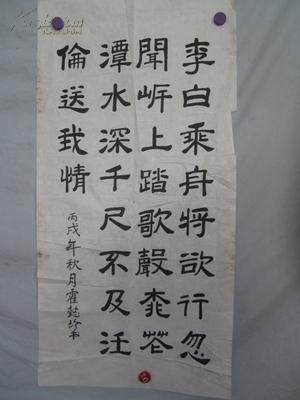 李白乘舟将欲行忽
聞岍上踏歌聲桃花
潭水深千尺不及汪
倫送我情
丙戌年秋月霍懿珍书